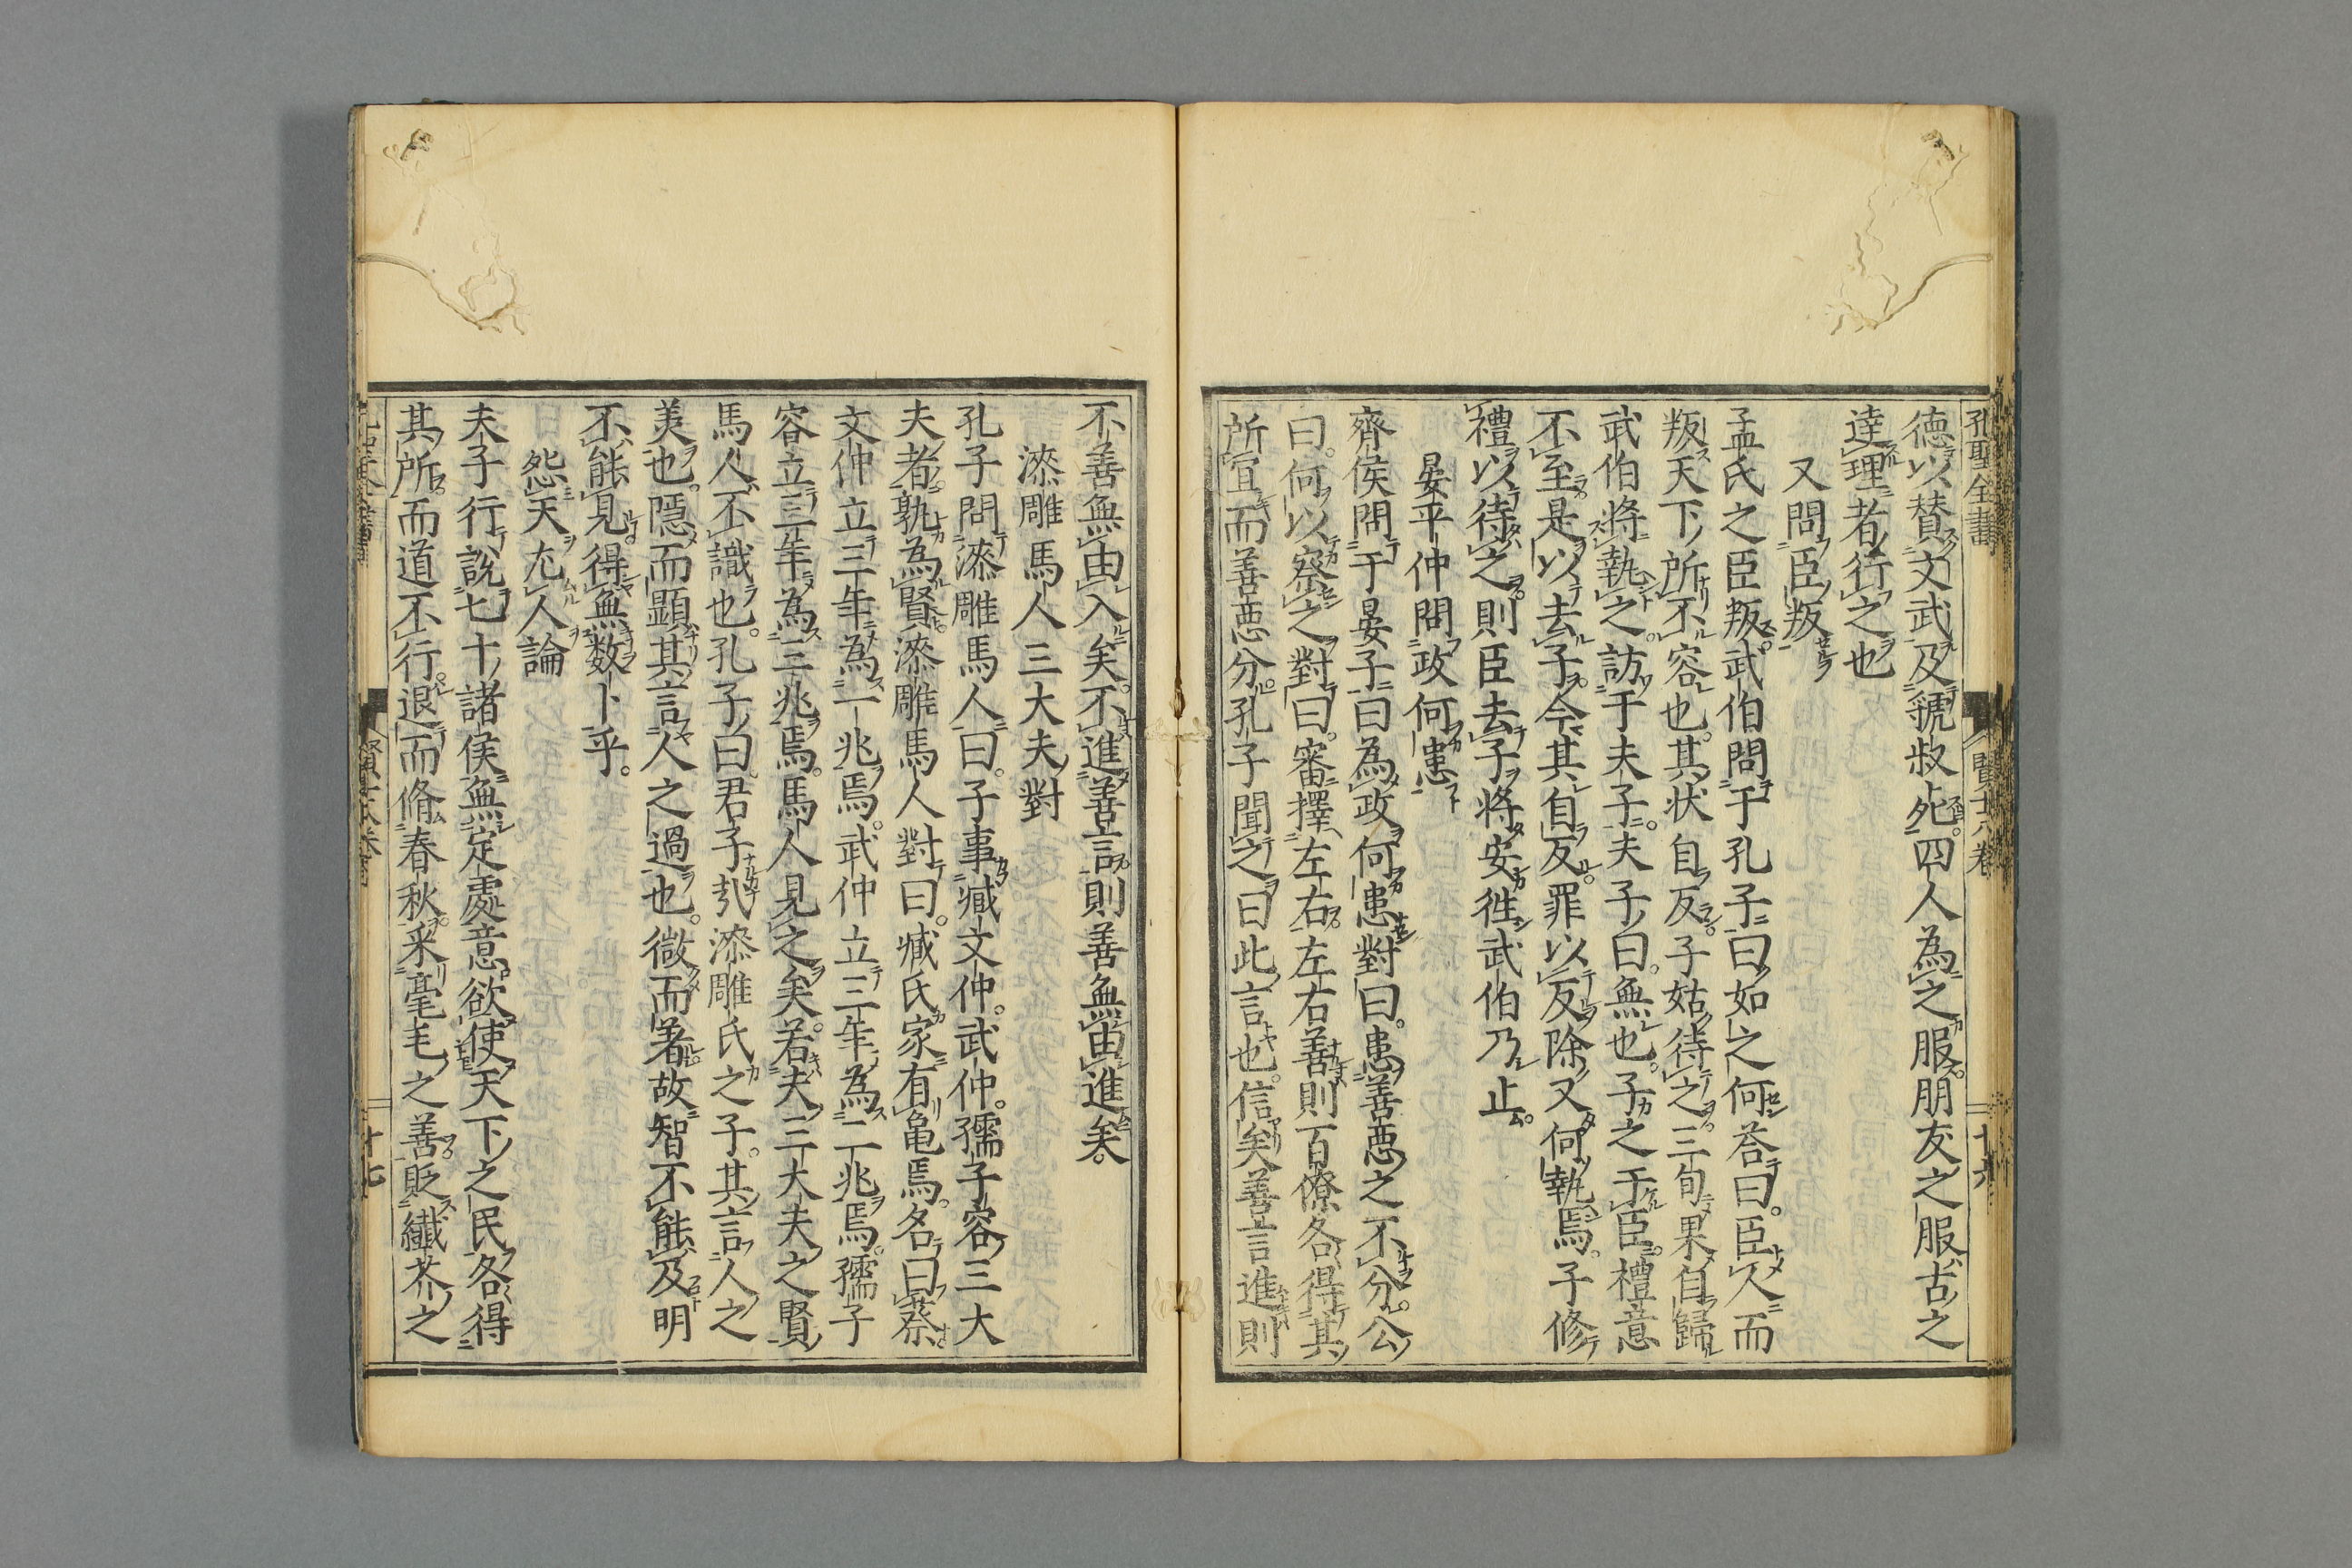 孔聖全書
賢十八卷
十六
德以賛文武及虢叔死四人為之服朋友之服古之
達理者行之也
又問臣叛
孟氏之臣叛武伯問于孔子曰如之何荅曰臣人而
叛天下所不容也其状自反子姑待之三旬果自歸
武伯將執之訪于夫子夫子曰無也子之于臣禮意
不至是以去子今其自反罪以反除又何執焉子修
禮以待之則臣去子将安徃武伯乃止
晏平仲問政何患
齊侯問于晏子曰為政何患對曰患善惡之不分公
曰何以察之對曰審擇左右左右善則百僚各得其
所宜而善惡分孔子聞之曰此言也信矣善言進則
不善無由入矣不進善言則善無由進矣
漆雕馬人三大夫對
孔子問漆雕馬人曰子事臧文仲武仲孺子容三大
夫者孰為賢漆雕馬人對曰臧氏家有龜焉名曰蔡
文仲立三年為一兆焉武仲立三年為二兆焉孺子
容立三年為三兆焉馬人見之矣若夫三大夫之賢
馬人不識也孔子曰君子哉漆雕氏之子其言人之
美也隱而顯其言人之過也微而著故智不能及明
不能見得無数卜乎
怨天尤人論
夫子行說七十諸侯無定處意欲使天下之民各得
其所而道不行退而脩春秋采毫毛之善貶纖芥之
十七